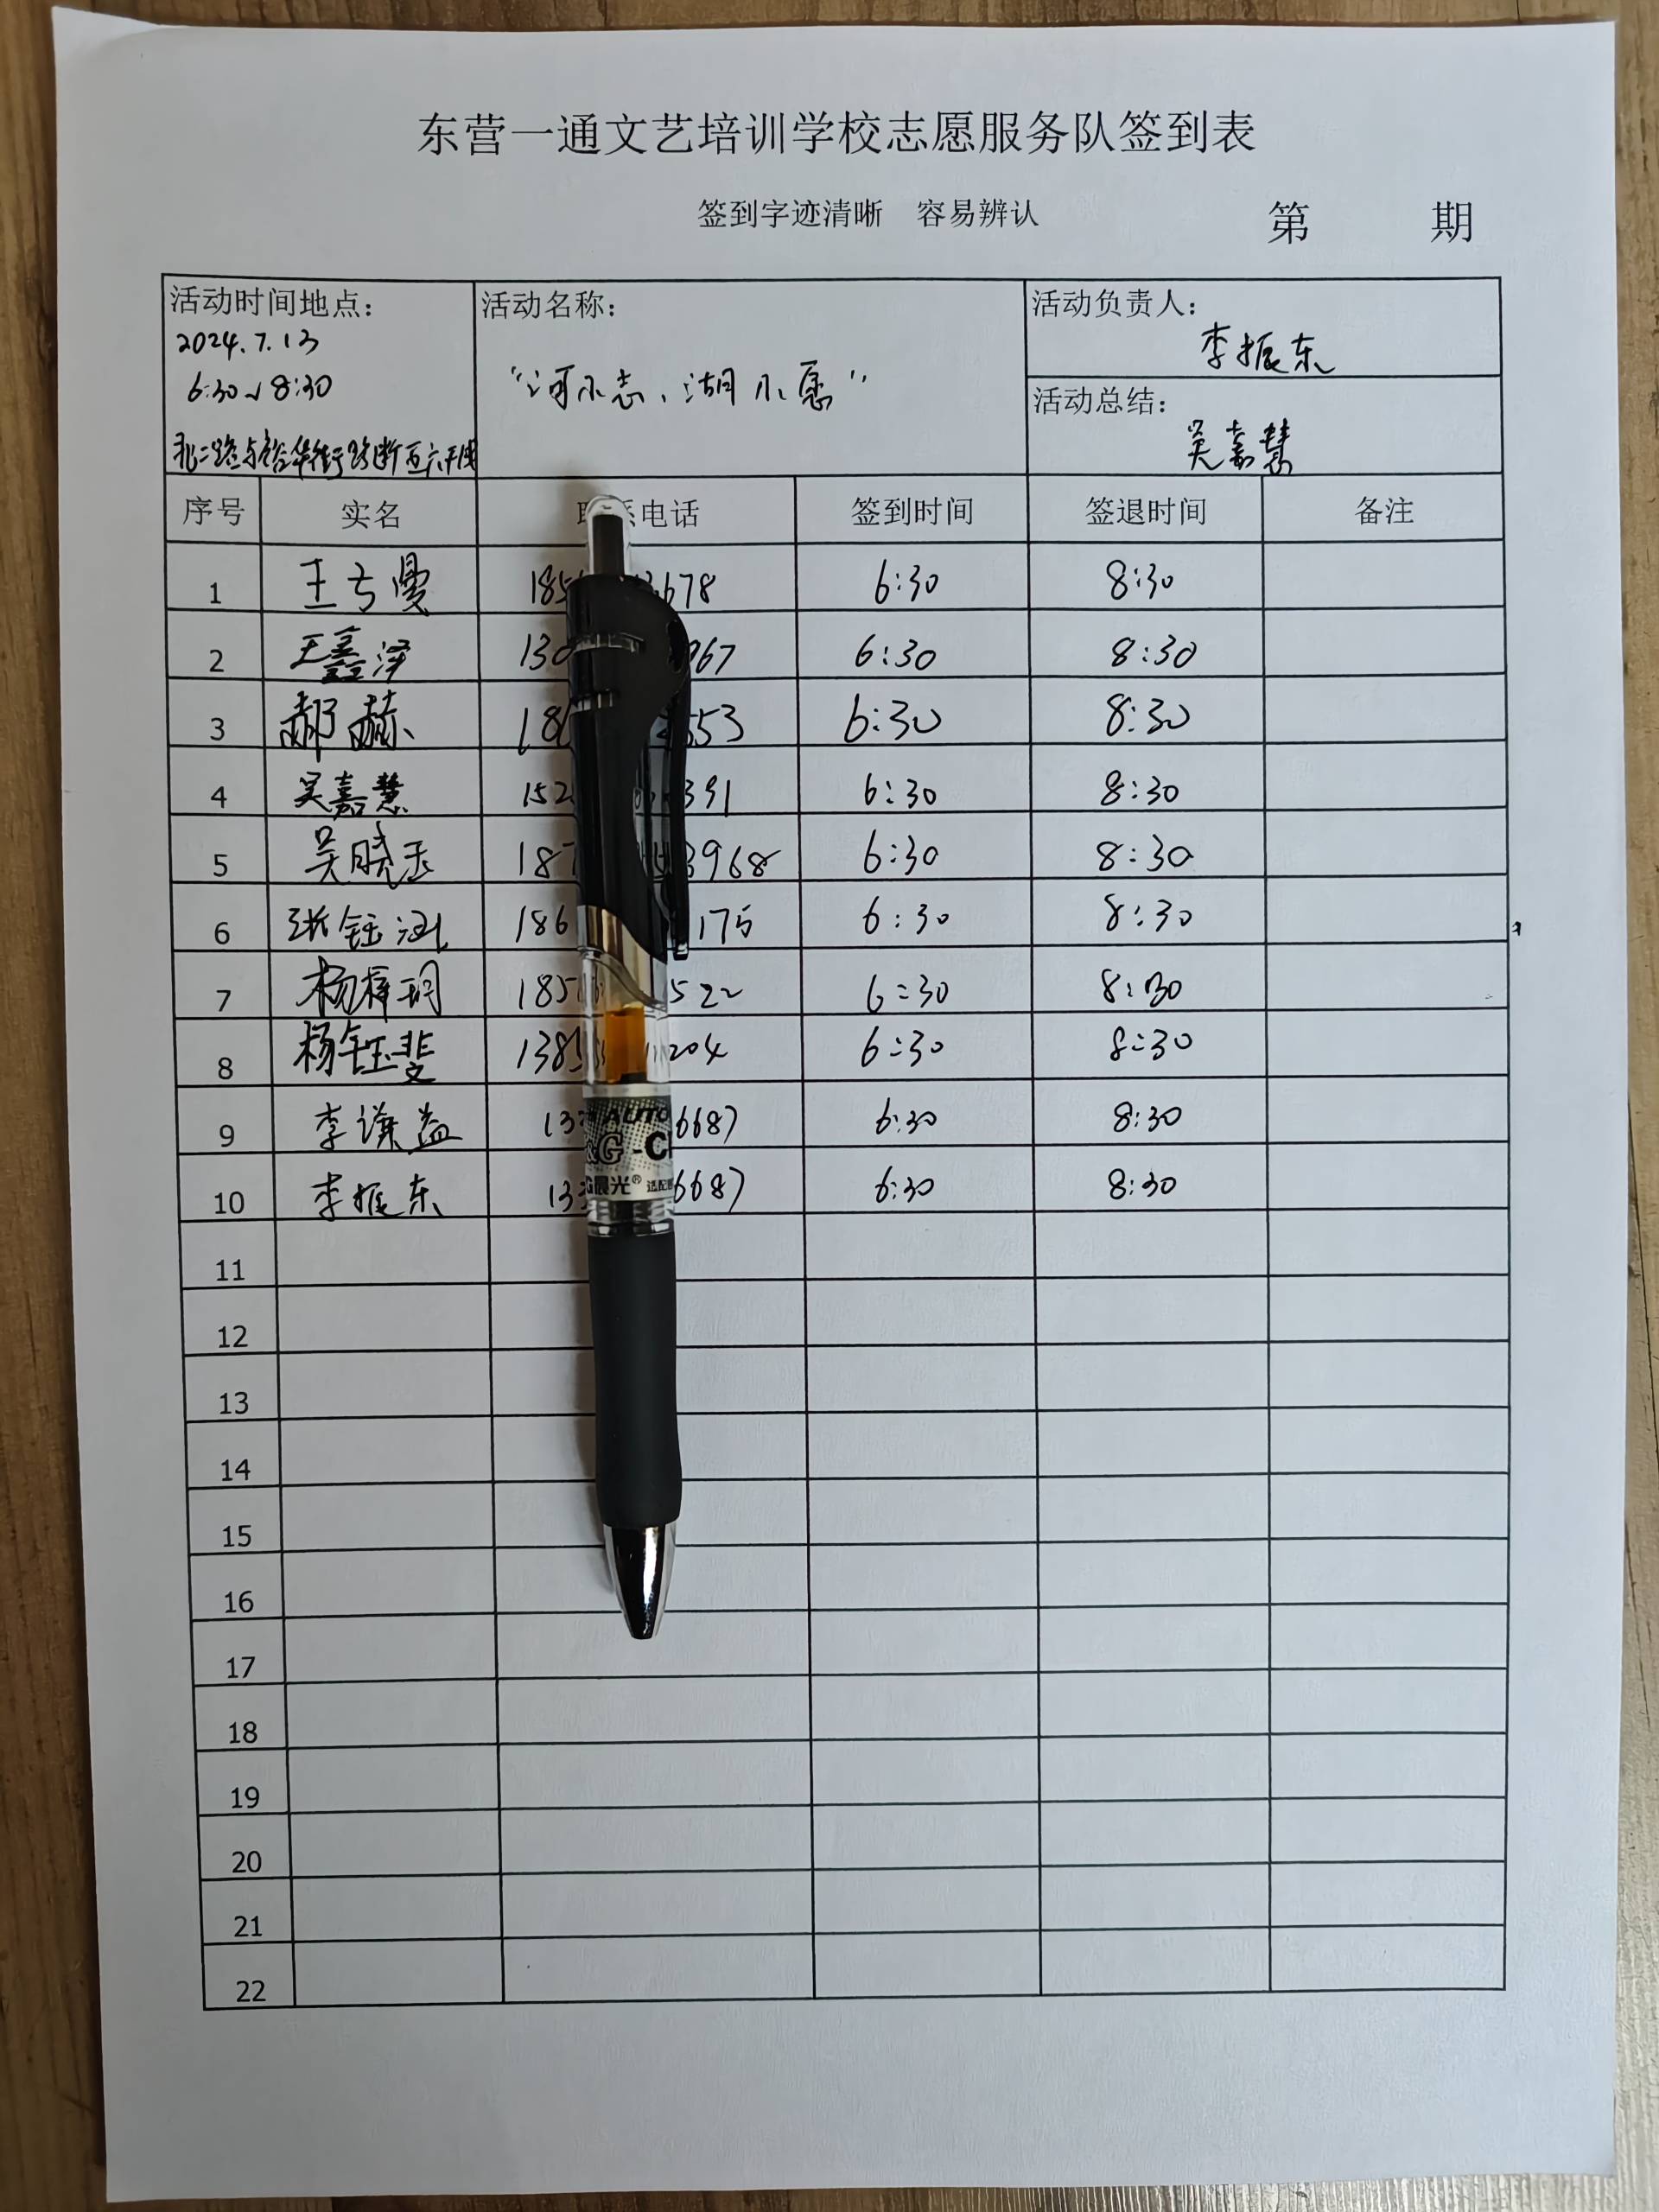 东营一通文艺培训学校志愿服务队签到表
签到字迹清晰 容易辨认 第 期
活动时间地点: 活动名称: 活动负责人:
2024.7.13 李振东
6:30~8:30 "河小志、湖小愿" 活动总结:
北二路与裕华街路 吴嘉慧
序号 实名 电话 签到时间 签退时间 备注
1 王 曼 185 678 6:30 8:30
2 王鑫泽 130 967 6:30 8:30
3 郝赫 18 553 6:30 8:30
4 吴嘉慧 152 391 6:30 8:30
5 吴晓玉 187 3968 6:30 8:30
6 张钰涵 186 175 6:30 8:30
7 杨梓玥 185 522 6:30 8:30
8 杨钰斐 138 204 6:30 8:30
9 李谦益 13 AUTO 6687 6:30 8:30
&G -C
10 李振东 13 晨光® 适配 6687 6:30 8:30
11
12
13
14
15
16
17
18
19
20
21
22